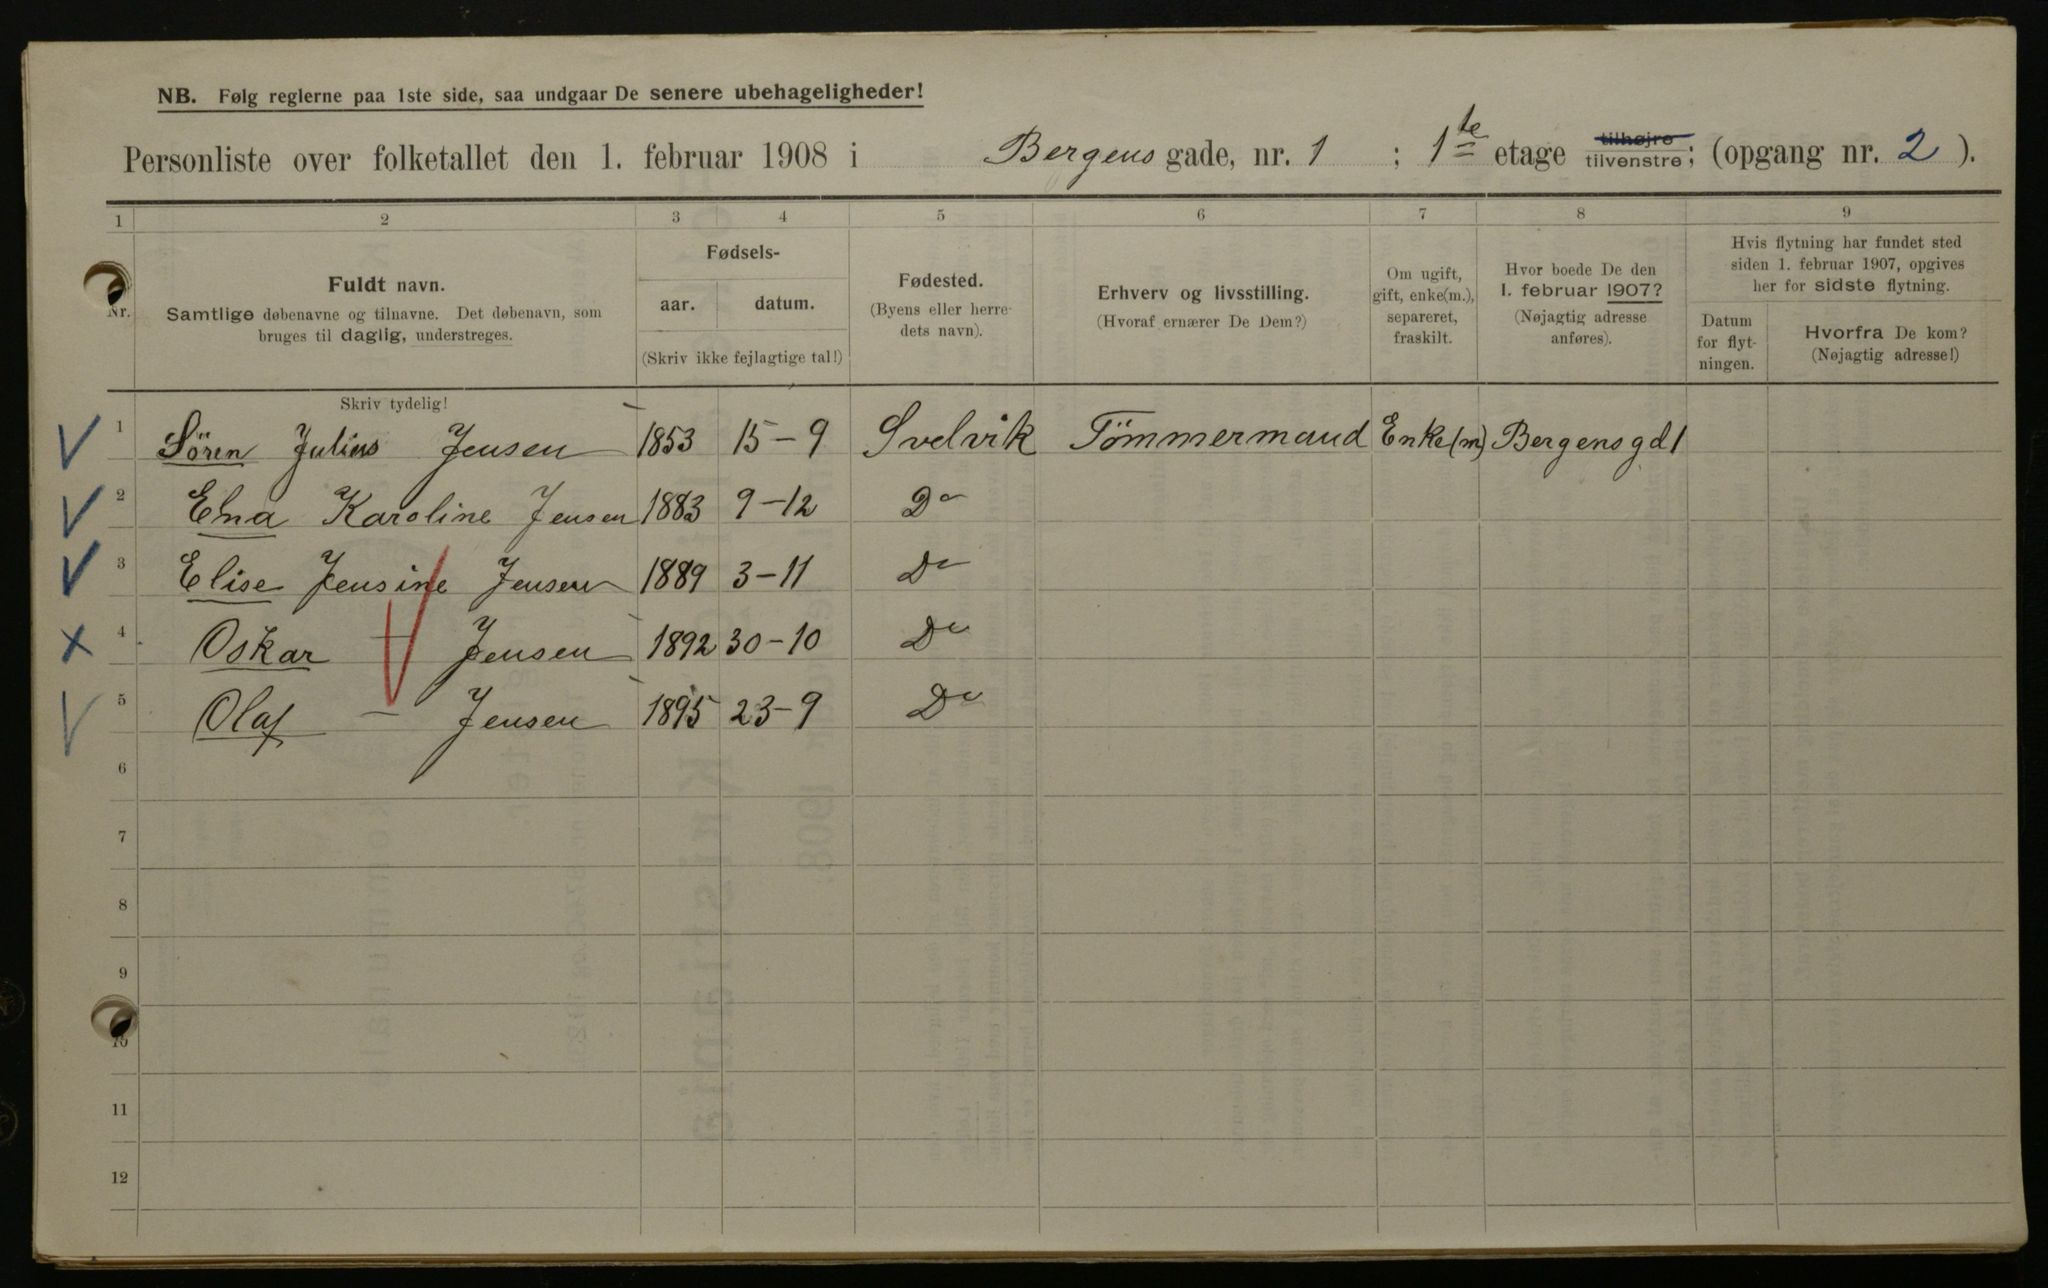 NB. Følg reglerne paa 1ste side, saa undgaar De senere ubehageligheder!
Personliste over folketallet den 1. februar 1908 i Bergens gade, nr. 1 ; 1te etage tilhøjre tilvenstre; (opgang nr. 2 ).
1 2 3 4 5 6 7 8 9
Nr.
Fuldt navn.
Samtlige døbenavne og tilnavne. Det døbenavn, som
bruges til daglig, understreges.
Fødsels-
aar. datum.
(Skriv ikke fejlagtige tal!)
Fødested.
(Byens eller herre-
dets navn).
Erhverv og livsstilling.
(Hvoraf ernærer De Dem?)
Om ugift,
gift, enke(m.),
separeret,
fraskilt.
Hvor boede De den
1. februar 1907?
(Nøjagtig adresse
anføres).
Hvis flytning har fundet sted
siden 1. februar 1907, opgives
her for sidste flytning.
Datum
for flyt-
ningen.
Hvorfra De kom?
(Nøjagtig adresse!)
Skriv tydelig!
1 Sören Julius Jensen 1853 15-9 Svelvik Tömmermand Enke(m) Bergensgd 1
2 Karoline Jensen 1883 9-12 Do
3 Elise Jensine Jensen 1889 3-11 Do
4 Oskar — Jensen 1892 30-10 Do
5 Olaf — Jensen 1895 23-9 Do
6
7
8
9
10
11
12